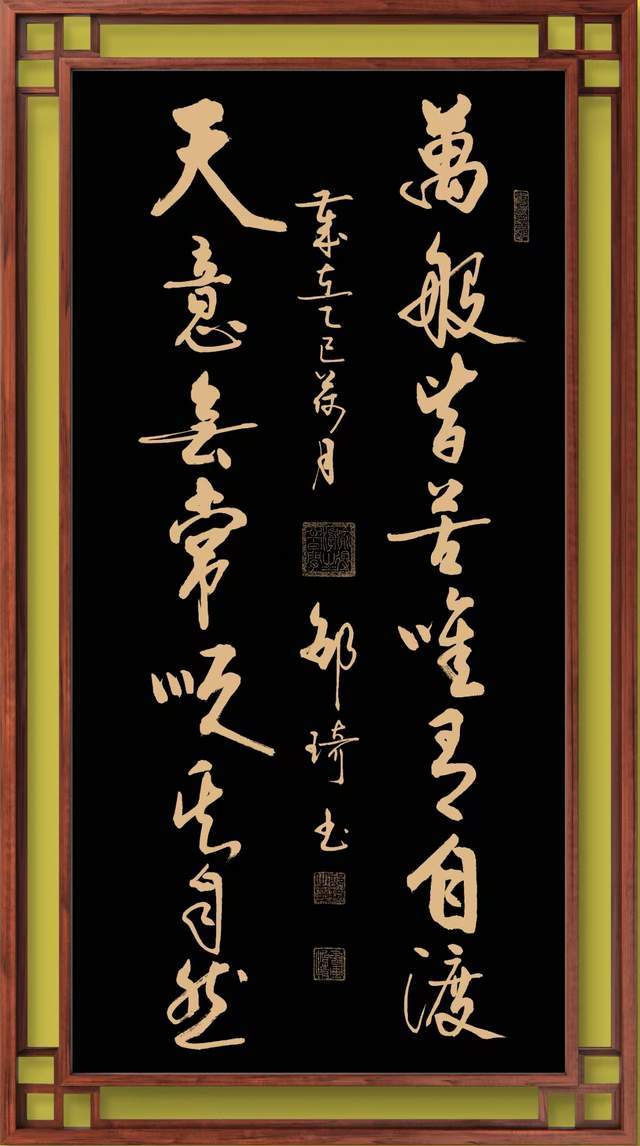 萬般皆苦唯有自渡
天意無常順其自然
歲在乙巳荷月
邵琦书